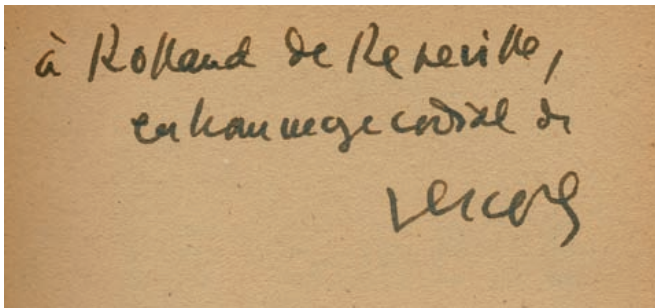 à Rolland de Reneville,
en hommage cordial de
Vercors